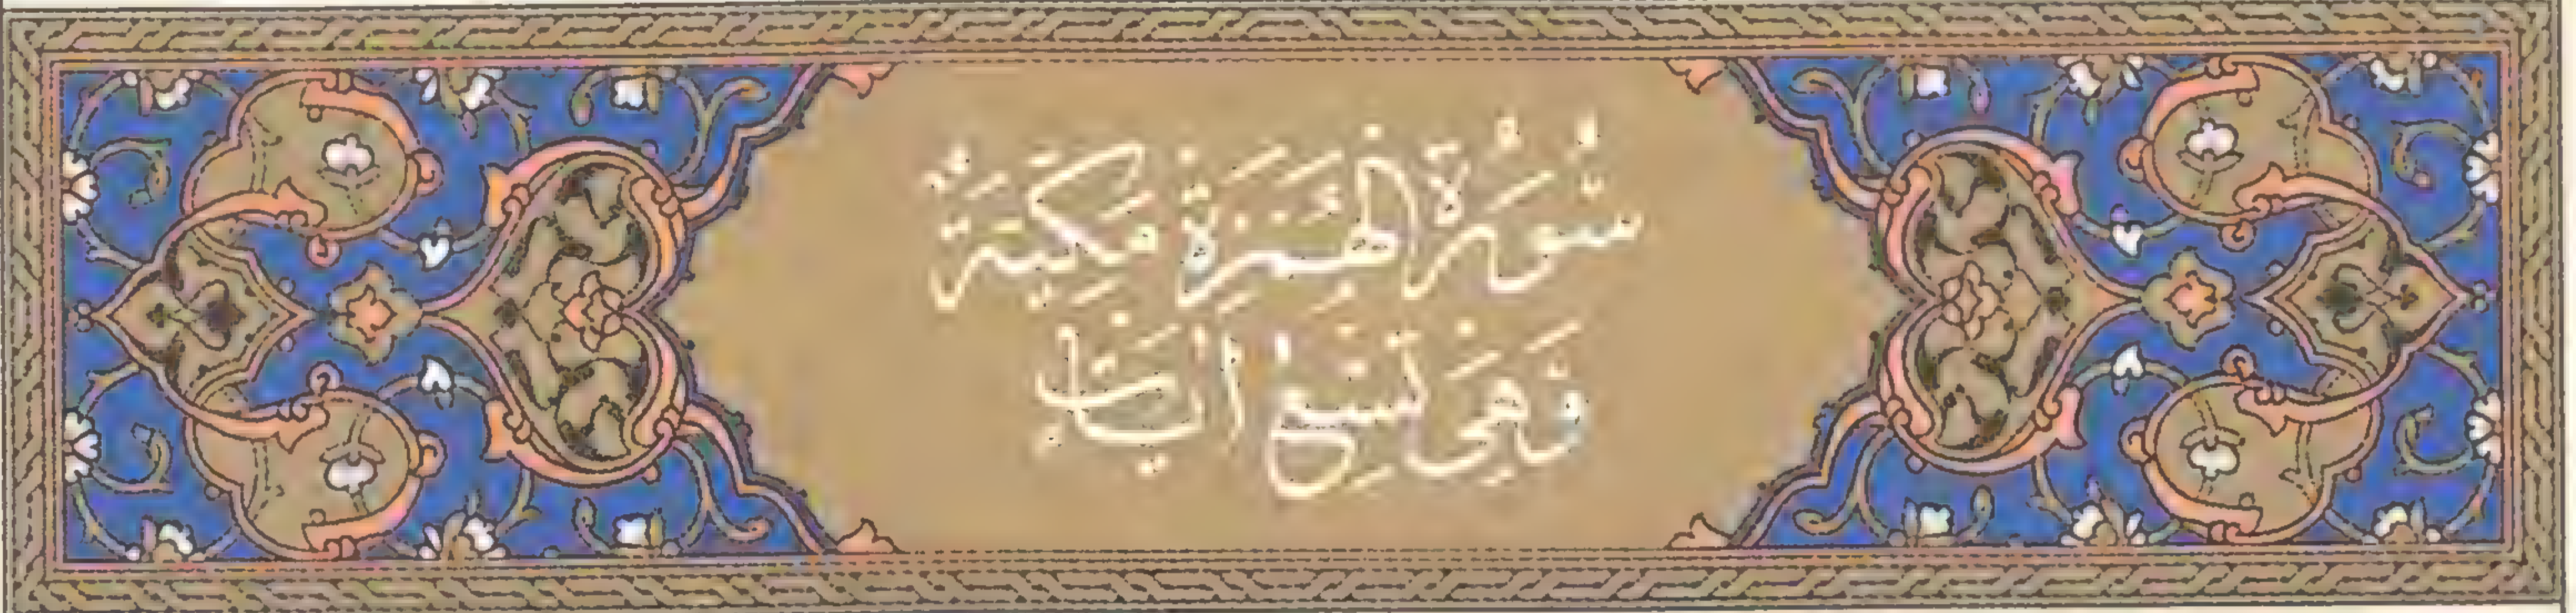 سُورَةُ الْهُمَزَةِ مَكِّيَّةٌ
وَهِيَ تِسْعُ اٰيَاتٍ